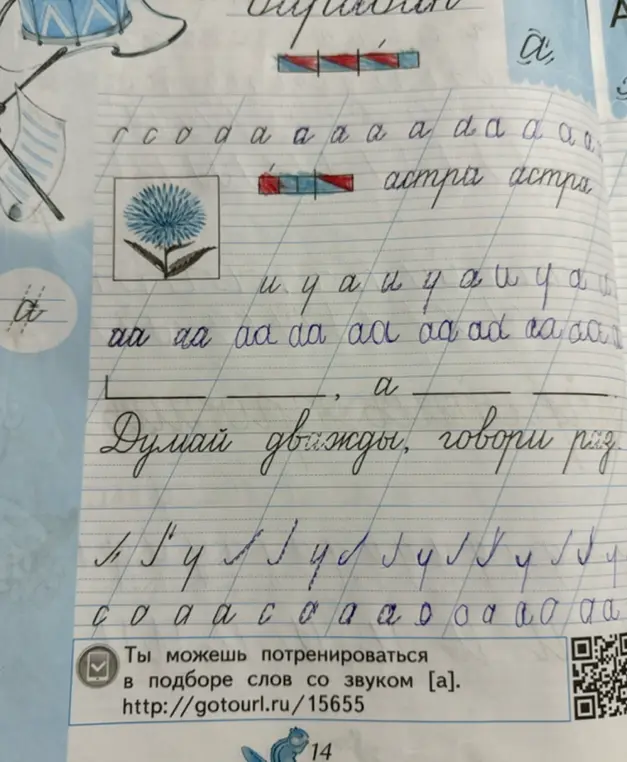 а
А
с с о а а а а а а а а а а а а
астра астра
а
и у а и у а и у а и
аа аа аа аа аа аа аа аа аа а
, а
Думай дважды, говори раз.
у у у у у
с о а а с о а а а о о а а о а а
Ты можешь потренироваться
в подборе слов со звуком [а].
http://gotourl.ru/15655
14